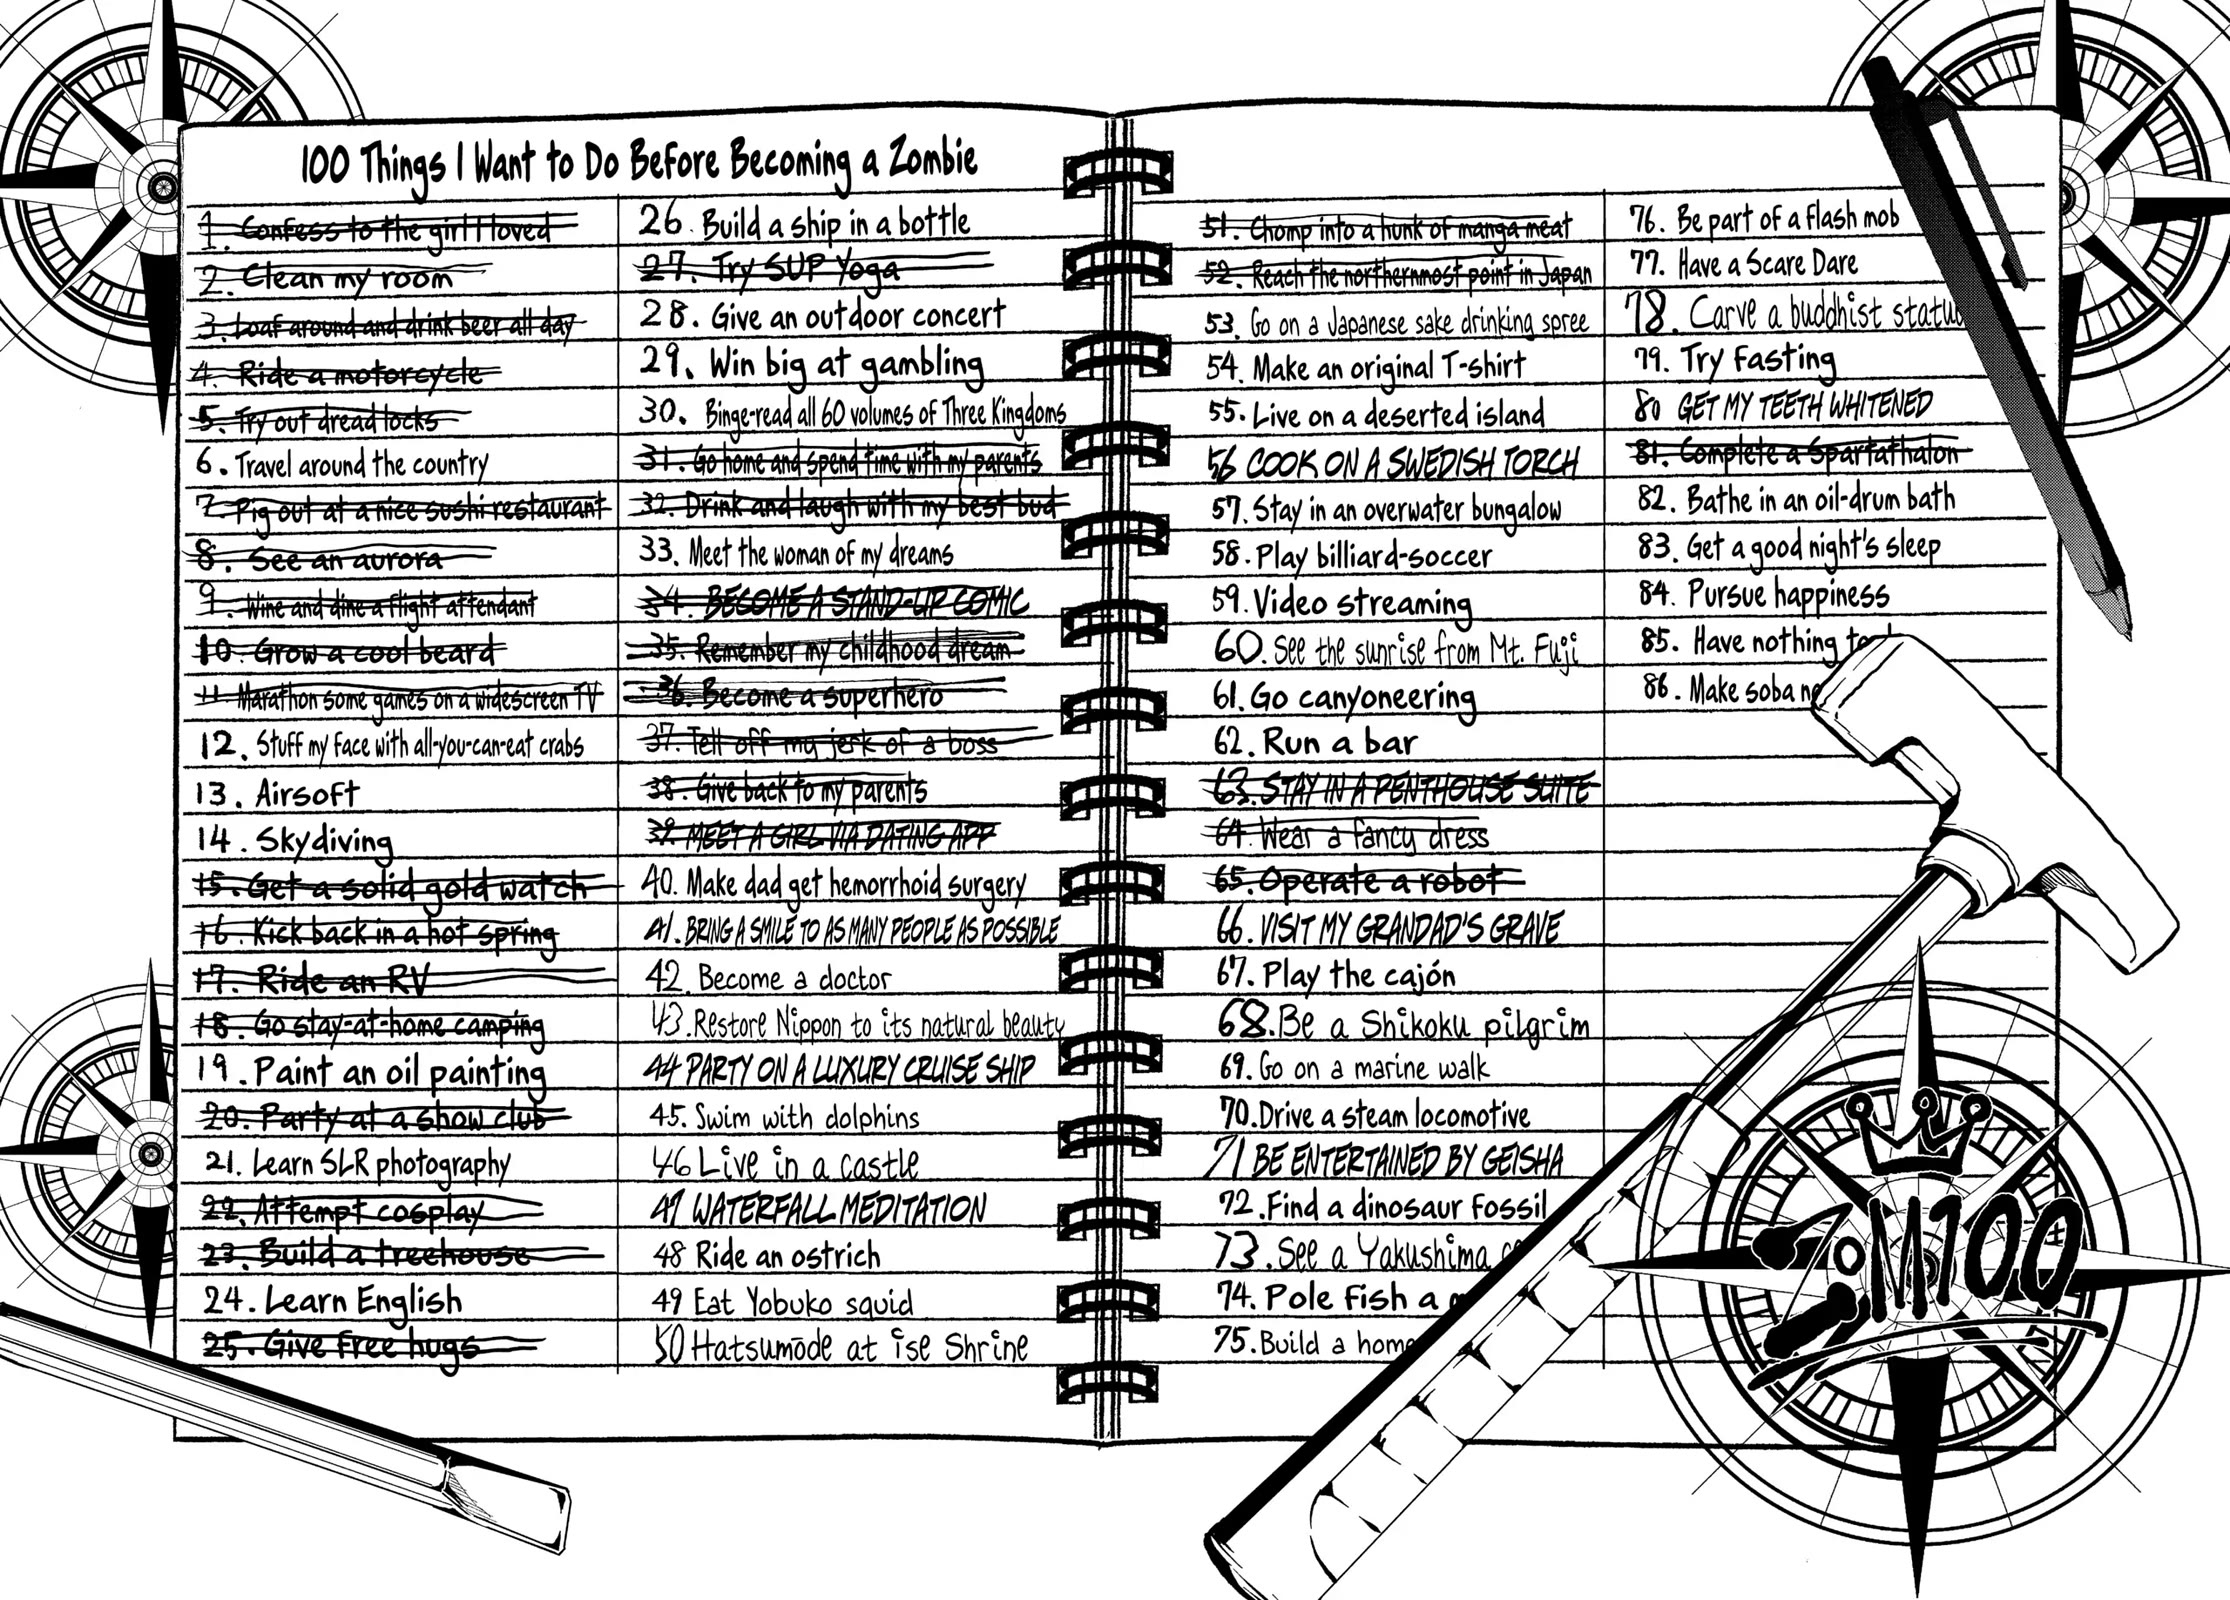 100 Things I Want to Do Before Becoming a Zombie
1. Confess to the girl I loved
2. Clean my room
3. Loaf around and drink beer all day
4. Ride a motorcycle
5. Try out dread locks
6. Travel around the country
7. Pig out at a nice sushi restaurant
8. See an aurora
9. Wine and dine a flight attendant
10. Grow a cool beard
11. Marathon some games on a widescreen TV
12. Stuff my face with all-you-can-eat crabs
13. Airsoft
14. Skydiving
15. Get a solid gold watch
16. Kick back in a hot spring
17. Ride an RV
18. Go stay-at-home camping
19. Paint an oil painting
20. Party at a show club
21. Learn SLR photography
22. Attempt cosplay
23. Build a treehouse
24. Learn English
25. Give free hugs
26. Build a ship in a bottle
27. Try SUP Yoga
28. Give an outdoor concert
29. Win big at gambling
30. Binge-read all 60 volumes of Three Kingdoms
31. Go home and spend time with my parents
32. Drink and laugh with my best bud
33. Meet the woman of my dreams
34. BECOME A STAND-UP COMIC
35. Remember my childhood dream
36. Become a superhero
37. Tell off my jerk of a boss
38. Give back to my parents
39. MEET A GIRL VIA DATING APP
40. Make dad get hemorrhoid surgery
41. BRING A SMILE TO AS MANY PEOPLE AS POSSIBLE
42. Become a doctor
43. Restore Nippon to its natural beauty
44 PARTY ON A LUXURY CRUISE SHIP
45. Swim with dolphins
46 Live in a castle
47 WATERFALL MEDITATION
48 Ride an ostrich
49 Eat Yobuko squid
50 Hatsumōde at ise Shrine
51. Chomp into a hunk of manga meat
52. Reach the northernmost point in Japan
53. Go on a Japanese sake drinking spree
54. Make an original T-shirt
55. Live on a deserted island
56 COOK ON A SWEDISH TORCH
57. Stay in an overwater bungalow
58. Play billiard-soccer
59. Video streaming
60. See the sunrise from Mt. Fuji
61. Go canyoneering
62. Run a bar
63. STAY IN A PENTHOUSE SUITE
64. Wear a fancy dress
65. Operate a robot
66. VISIT MY GRANDAD'S GRAVE
67. Play the cajón
68. Be a Shikoku pilgrim
69. Go on a marine walk
70. Drive a steam locomotive
71 BE ENTERTAINED BY GEISHA
72. Find a dinosaur fossil
73. See a Yakushima
74. Pole fish a
75. Build a home
76. Be part of a flash mob
77. Have a Scare Dare
78. Carve a buddhist
79. Try fasting
80 GET MY TEETH WHITENED
81. Complete a Spartathalon
82. Bathe in an oil-drum bath
83. Get a good night's sleep
84. Pursue happiness
85. Have nothing
86. Make soba
ZOM100